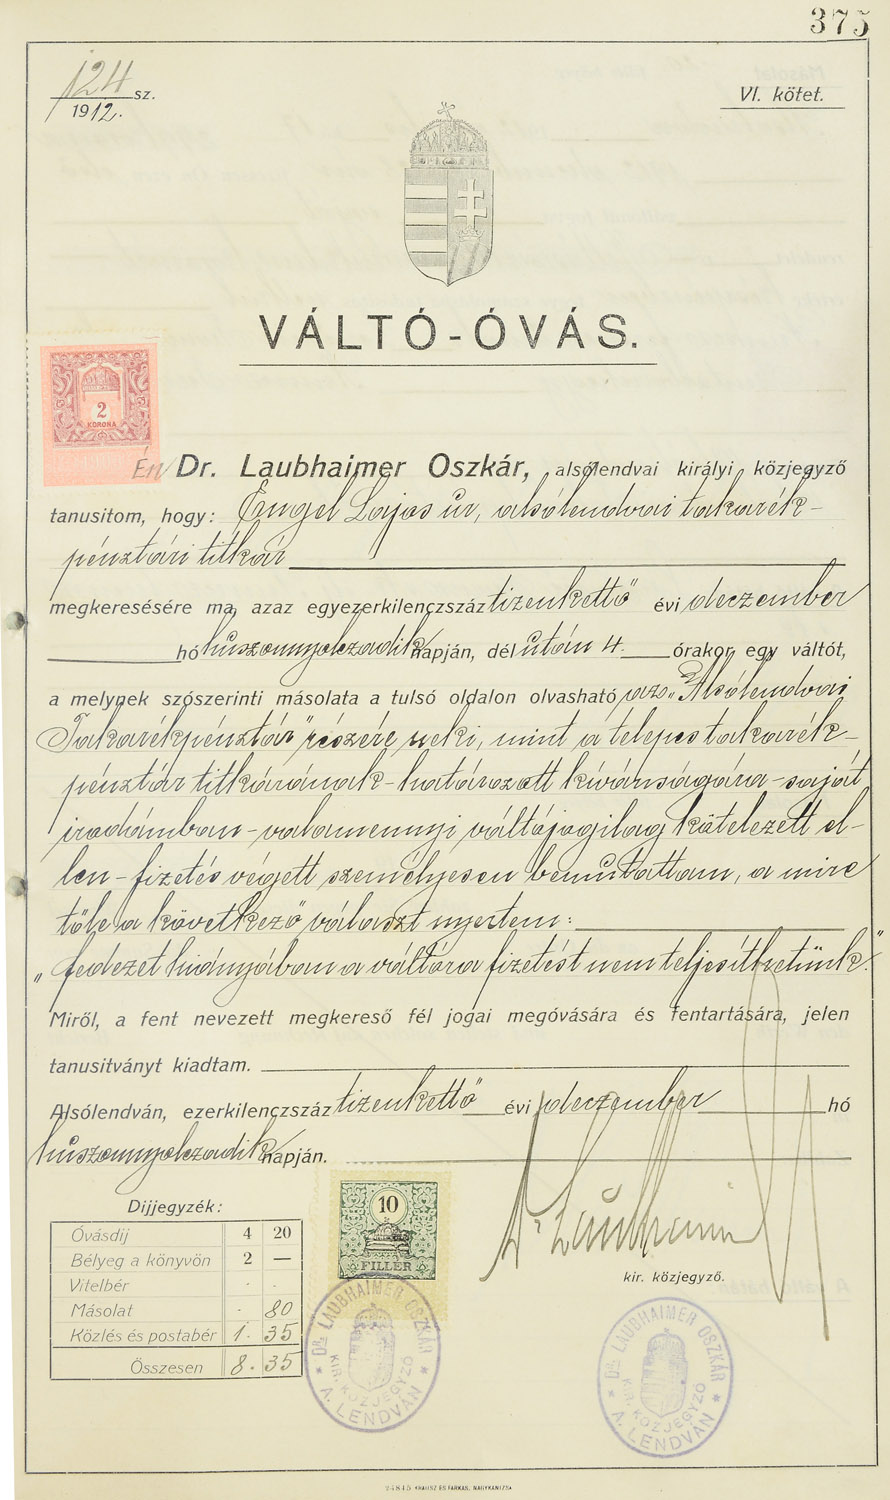 375
124 sz.
1912.
VI. kötet.
VÁLTÓ-ÓVÁS.
2
KORONA
Én Dr. Laubhaimer Oszkár, alsólendvai királyi közjegyző
tanusitom, hogy: Engel Lajos úr, alsólendvai takarék-
pénztári titkár
megkeresésére ma, azaz egyezerkilenczszáz tizenkettő évi deczember
hó huszonnyolczadik napján, dél után 4 órakor egy váltót,
a melynek szószerinti másolata a tulsó oldalon olvasható az „Alsólendvai
Takarékpénztár" részére neki, mint a telepes takarék-
pénztár titkárának - határozott kívánságára - saját
irodámban - valamennyi váltójogilag kötelezett el-
len - fizetés végett személyesen bemutattam, a mire
tőle a következő választ nyertem:
„fedezet hiányában a váltóra fizetést nem teljesíthetünk."
Miről, a fent nevezett megkereső fél jogai megóvására és fentartására, jelen
tanusitványt kiadtam.
Alsólendván, ezerkilenczszáz tizenkettő évi deczember hó
huszonnyolczadik napján.
Dijjegyzék:
Óvásdij 4 20
Bélyeg a könyvön 2 —
Vitelbér - -
Másolat - 80
Közlés és postabér 1. 35
Összesen 8. 35
10
FILLÉR
Dr. Laubhaimer
kir. közjegyző.
DR. LAUBHAIMER OSZKÁR
KIR. KÖZJEGYZŐ
* A. LENDVÁN *
DR. LAUBHAIMER OSZKÁR
KIR. KÖZJEGYZŐ
* A. LENDVÁN *
24845 KRAUSZ ÉS FARKAS, NAGYKANIZSA